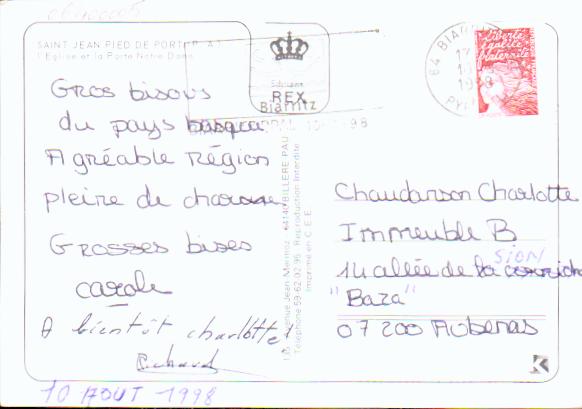 SAINT JEAN PIED DE PORT
l'Eglise et la Porte Notre Dame
Gros bisous
du pays basque
Agréable région
pleine de charme
Grosses bises
carole
A bientôt charlotte!
10 AOUT 1998
REX
Biarritz
64 BIARRITZ
17
1998
liberté
égalité
fraternité
Avenue Jean Mermoz 64140 BILLERE PAU
Téléphone 59-62-02-95 Reproduction Interdite
Imprimé en C.E.E.
Chaudanson Charlotte
Immeuble B
SION
14 allée de la
"Baza"
07 200 Aubenas
K